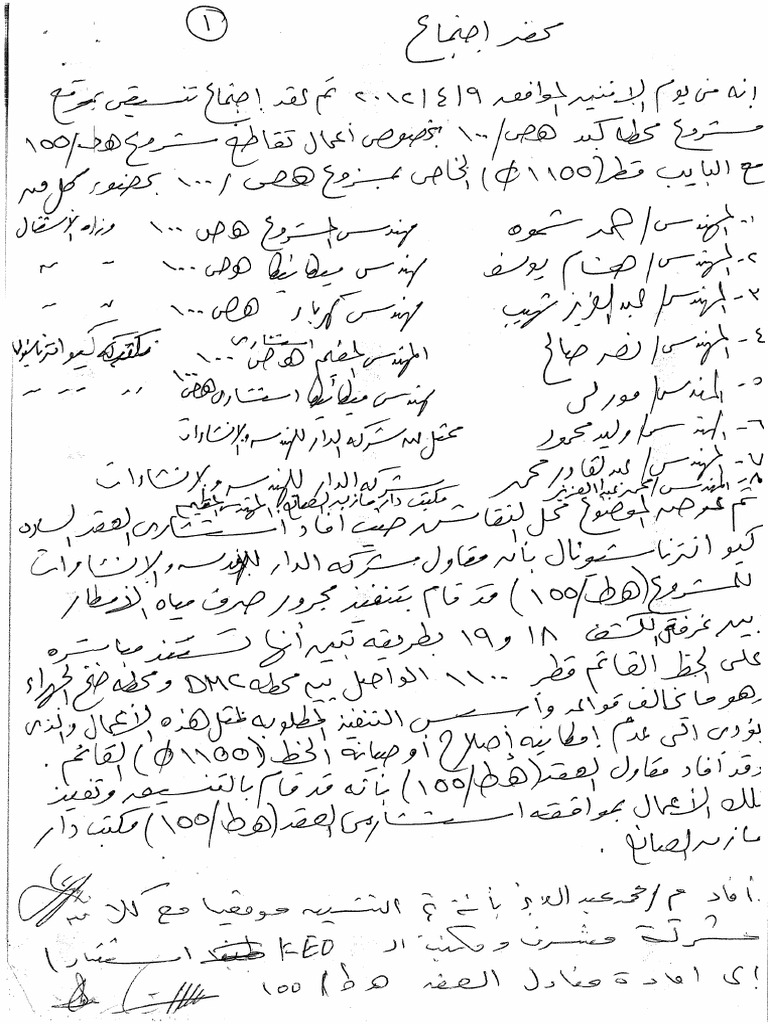 ١
محضر إجتماع
إنه في يوم الإثنين الموافق ٢٠١٢/٤/٩ تم عقد إجتماع تنسيقي بموقع
مشروع محطة كبد هص/١٠٠ بخصوص أعمال تقاطع مشروع هط/١٥٥
مع البايب قطر (١١٥٥ Ø) الخاص بمشروع هص/١٠٠ بحضور كل من
١- المهندس/ حمد شموه مهندس المشروع هص ١٠٠ وزارة الأشغال
٢- المهندس/ هشام يوسف مهندس ميكانيكا هص ١٠٠ " "
٣- المهندس/ عبدالعزيز شهيب مهندس كهرباء هص ١٠٠ " "
٤- المهندس/ نصر صالح المهندس المقيم استشاري هص ١٠٠ كيو انترناشيونال
٥- المهندس/ موريس مهندس ميكانيكا استشاري هص ١٠٠ " " "
٦- المهندس/ وليد محمود ممثل من شركة الدار للهندسة والإنشاءات
٧- المهندس/ عبدالقادر محمد شركة الدار للهندسة والإنشاءات
٨- المهندس/ محمد عبدالعزيز مكتب دار مازن الصانع/ المهندس المقيم
تم عرض الموضوع محل النقاش حيث أفاد استشاري العقد السادة
كيو انترناشيونال بأن مقاول شركة الدار للهندسة والإنشاءات
للمشروع (هط/١٥٥) قد قام بتنفيذ مجرور صرف مياه الأمطار
بين غرفتي الكشف ١٨ و ١٩ بطريقة تبين أنها تستند مباشرة
على الخط القائم قطر ١١٠٠ الواصل بين محطة DMC ومحطة ضخ الجهراء
وهو ما يخالف قواعد وأسس التنفيذ المطلوبة لمثل هذه الأعمال والذي
يؤدي إلى عدم إمكانية إصلاح أو صيانة الخط (١١٥٥ Ø) القائم .
وقد أفاد مقاول العقد (هط/١٥٥) بأنه قد قام بالتنسيق وتنفيذ
تلك الأعمال بموافقة استشاري العقد (هط/١٥٥) مكتب دار
مازن الصانع .
أفاد م/محمد عبدالعزيز بأنه تم التنسيق موقعيا مع كلا من
شركة مشرف ومكتب الـ KEO استنادا
إلى افادة مقاول العقد هط/١٥٥